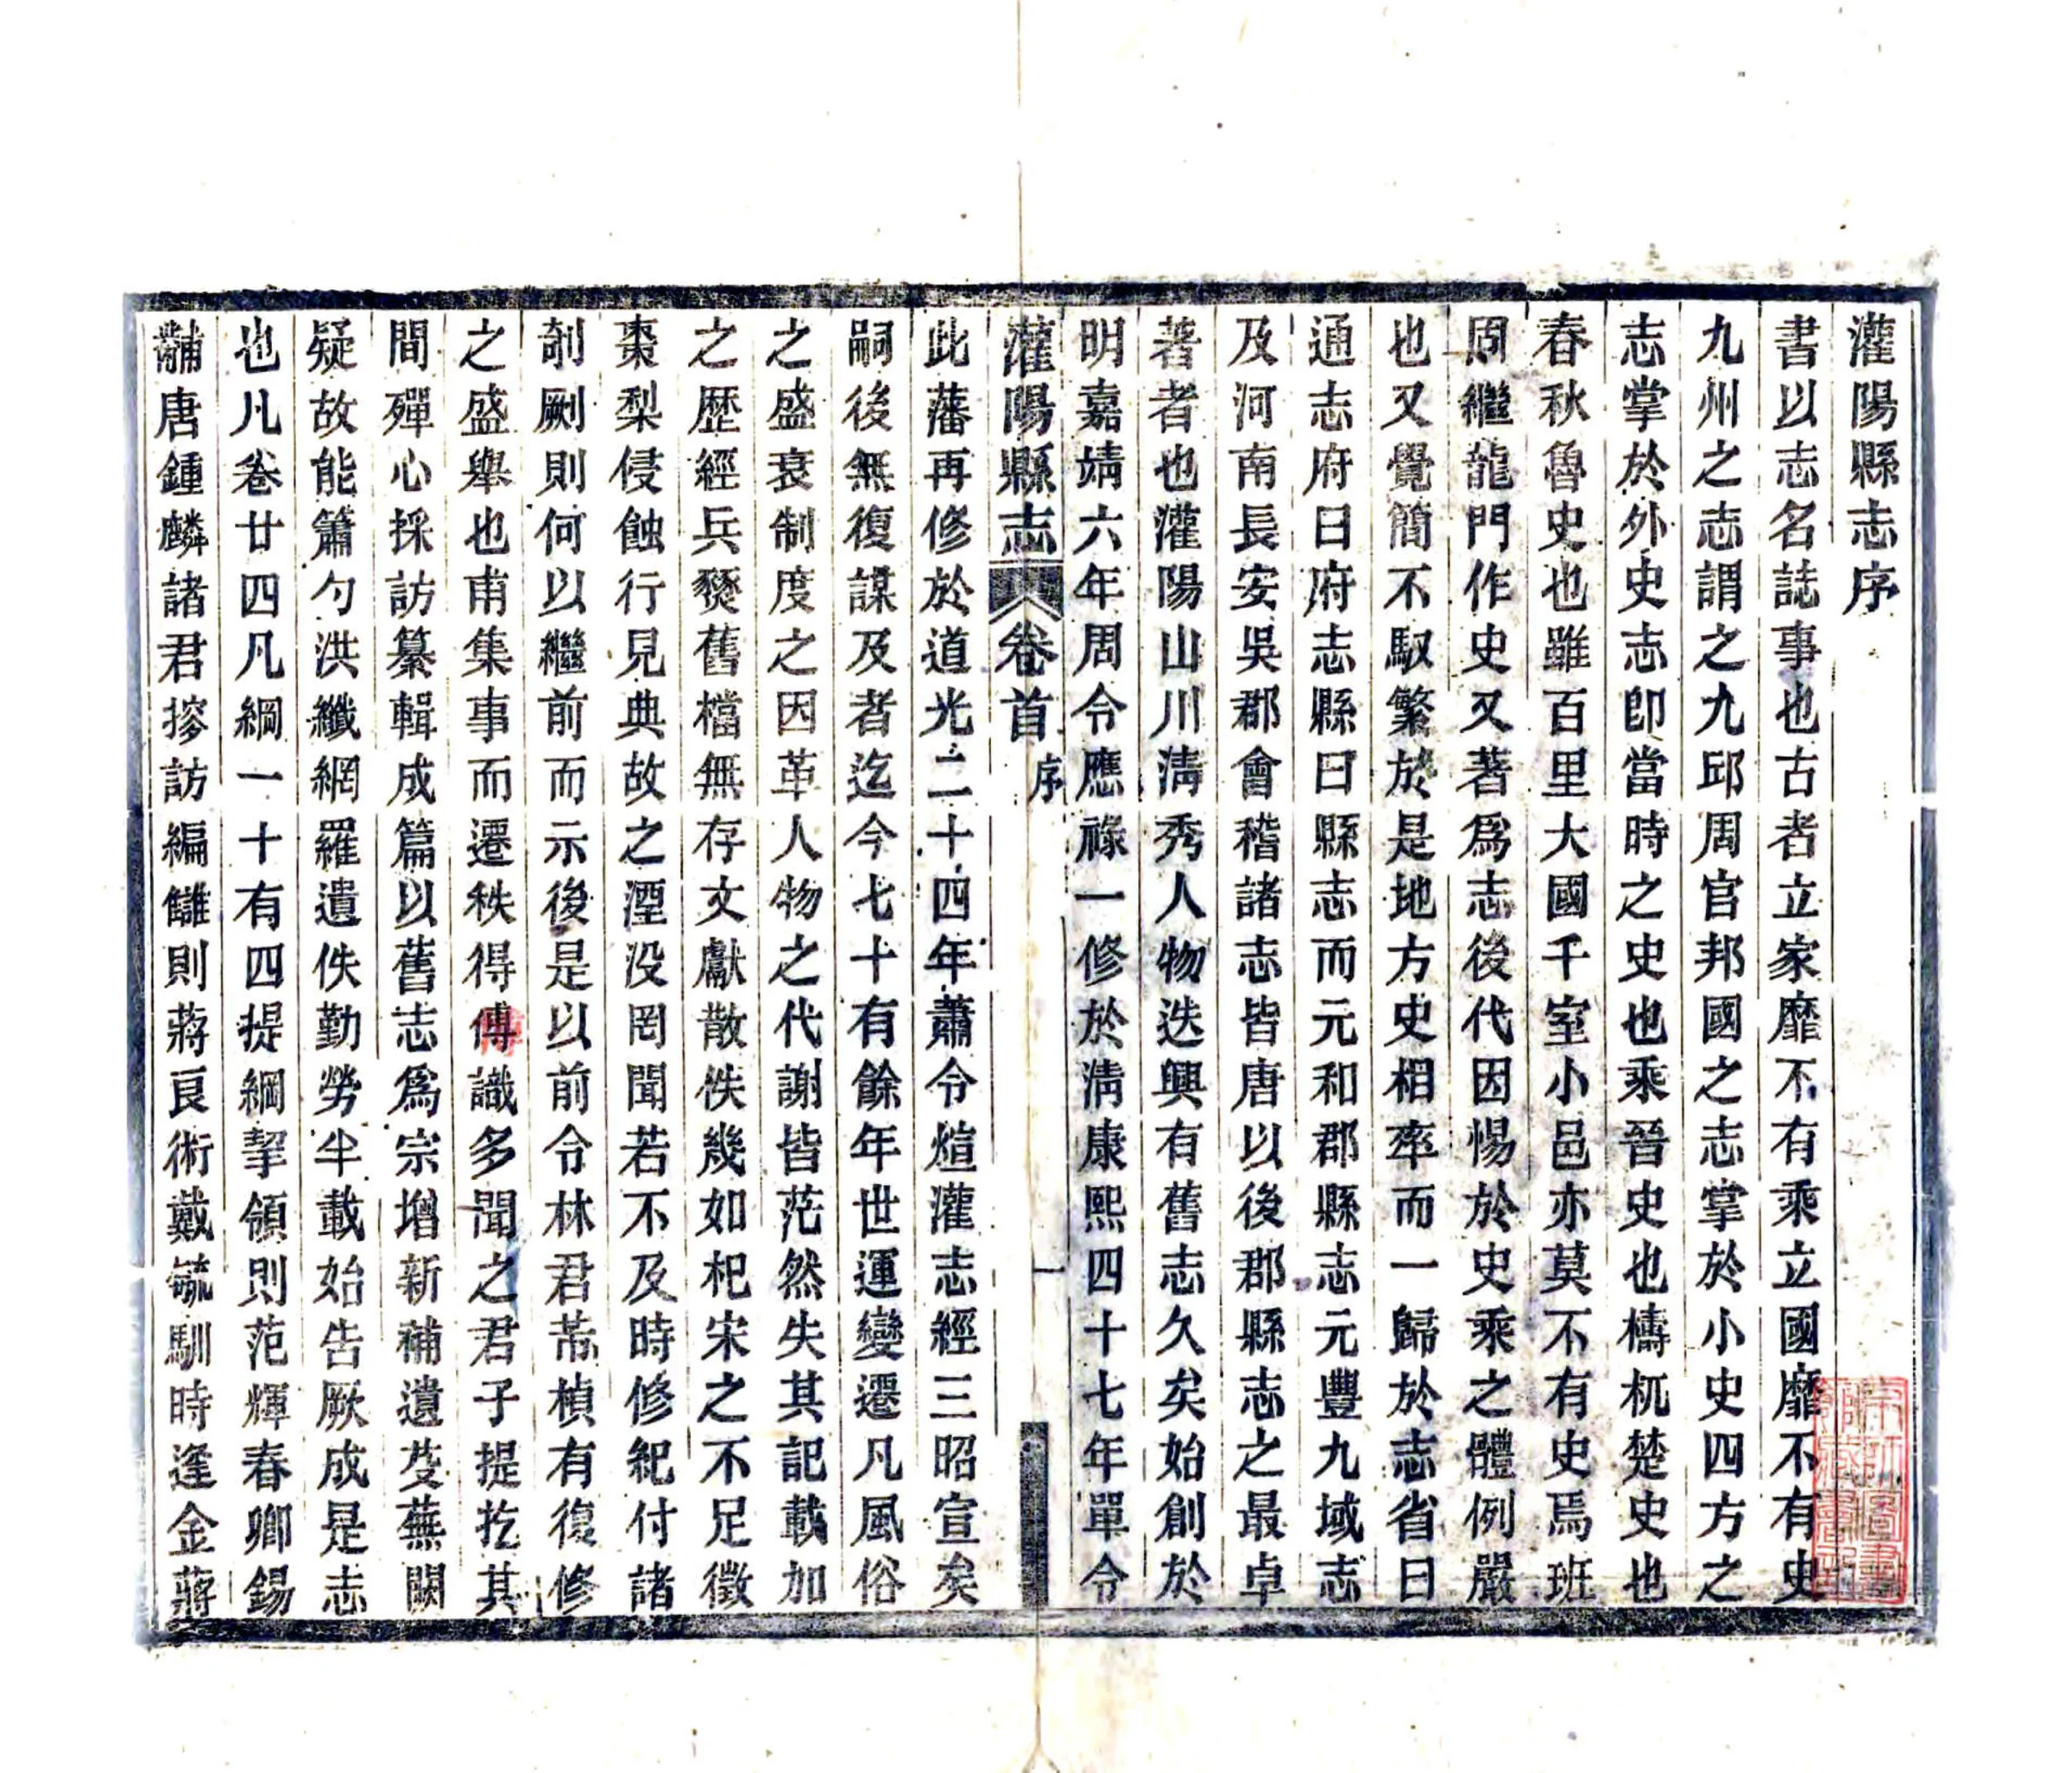 灌陽縣志序
書以志名誌事也古者立家靡不有乘立國靡不有史
九州之志謂之九邱周官邦國之志掌於小史四方之
志掌於外史志卽當時之史也乘晉史也檮杌楚史也
春秋魯史也雖百里大國千室小邑亦莫不有史焉班
周繼龍門作史又著爲志後代因惕於史乘之體例嚴
也又覺簡不馭繁於是地方史相率而一歸於志省曰
通志府曰府志縣曰縣志而元和郡縣志元豐九域志
及河南長安吳郡會稽諸志皆唐以後郡縣志之最卓
著者也灌陽山川淸秀人物迭興有舊志久矣始創於
明嘉靖六年周令應祿一修於淸康熙四十七年單令
灌陽縣志 卷首 序 一
此藩再修於道光二十四年蕭令煊灌志經三昭宣矣
嗣後無復謀及者迄今七十有餘年世運變遷凡風俗
之盛衰制度之因革人物之代謝皆茫然失其記載加
之歷經兵燹舊檔無存文獻散佚幾如杞宋之不足徵
棗梨侵蝕行見典故之湮没罔聞若不及時修紀付諸
剞劂則何以繼前而示後是以前令林君芾楨有復修
之盛舉也甫集事而遷秩得傅識多聞之君子提挖其
間殫心採訪纂輯成篇以舊志爲宗增新補遺芟蕪闕
疑故能簫勺洪纖網羅遺佚勤勞半載始告厥成是志
也凡卷廿四凡綱一十有四提綱挈領則范輝春卿錫
黼唐鍾麟諸君摉訪編讎則蔣良術戴毓馴時逢金蔣